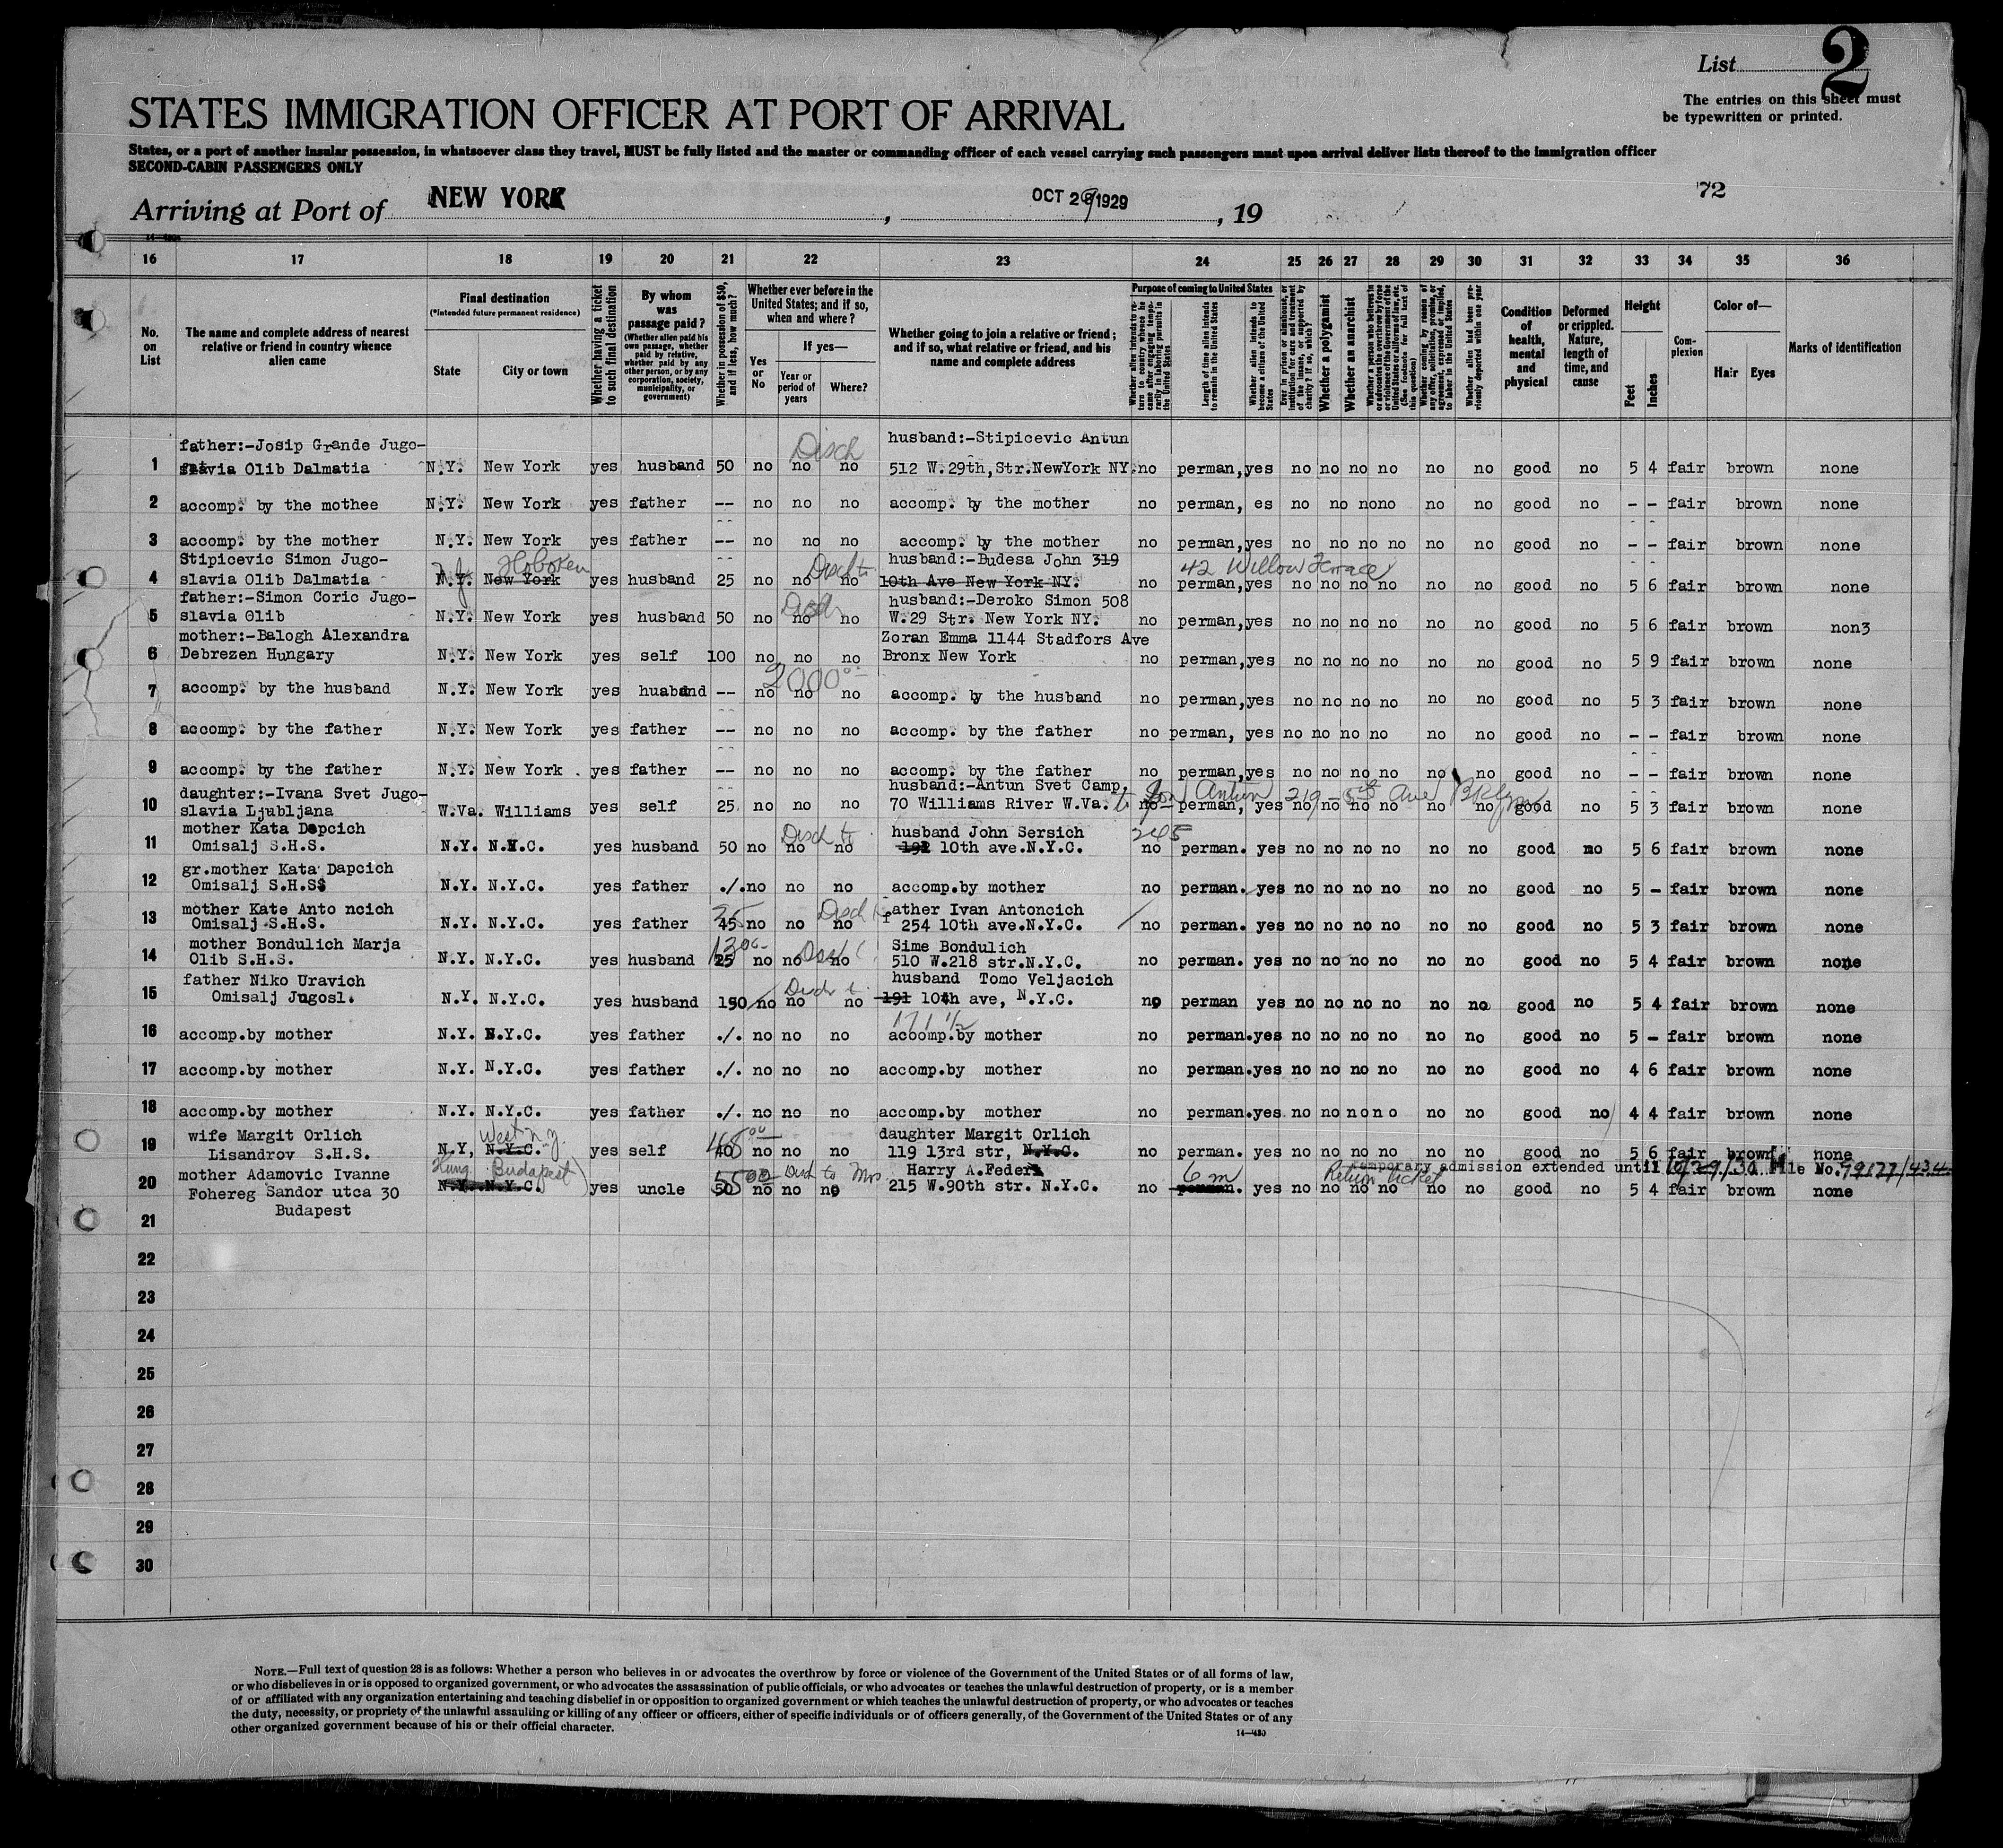 List 2
The entries on this sheet must
be typewritten or printed.
STATES IMMIGRATION OFFICER AT PORT OF ARRIVAL
States, or a port of another insular possession, in whatsoever class they travel, MUST be fully listed and the master or commanding officer of each vessel carrying such passengers must upon arrival deliver lists thereof to the immigration officer
SECOND-CABIN PASSENGERS ONLY
72
Arriving at Port of NEW YORK, OCT 29 1929, 19
16 17 18 19 20 21 22 23 24 25 26 27 28 29 30 31 32 33 34 35 36
No. on List
The name and complete address of nearest relative or friend in country whence alien came
Final destination
(*Intended future permanent residence)
State City or town
Whether having a ticket to such final destination
By whom was passage paid?
(Whether alien paid his own passage, whether paid by relative, whether paid by any other person, or by any corporation, society, municipality, or government)
Whether in possession of $50, and if less, how much?
Whether ever before in the United States; and if so, when and where?
Yes or No
If yes—
Year or period of years Where?
Whether going to join a relative or friend; and if so, what relative or friend, and his name and complete address
Purpose of coming to United States
Whether alien intends to return to country whence he came after engaging temporarily in laboring pursuits in the United States
Length of time alien intends to remain in the United States
Whether alien intends to become a citizen of the United States
Ever in prison or almshouse, or institution for care and treatment of the insane, or supported by charity? If so, which?
Whether a polygamist
Whether an anarchist
Whether a person who believes in or advocates the overthrow by force or violence of the Government of the United States or all forms of law, etc. (See footnote for full text of this question)
Whether coming by reason of any offer, solicitation, promise, or agreement, expressed or implied, to labor in the United States
Whether alien had been previously deported within one year
Condition of health, mental and physical
Deformed or crippled. Nature, length of time, and cause
Height
Feet Inches
Complexion
Color of—
Hair Eyes
Marks of identification
father:-Josip Grande Jugo- Disch husband:-Stipicevic Antun
1 slavia Olib Dalmatia N.Y. New York yes husband 50 no no no 512 W.29th,Str.NewYork NY. no perman,yes no no no no no no good no 5 4 fair brown none
2 accomp. by the mothee N.Y. New York yes father -- no no no accomp. by the mother no perman, es no no nono no no good no - - fair brown none
3 accomp. by the mother N.Y. New York yes father -- no no no accomp. by the mother no perman,yes no no no no no no good no - - fair brown none
Stipicevic Simon Jugo- Hoboken Disch to husband:-Dudesa John 319 42 Willow Terrace
4 slavia Olib Dalmatia N.Y. New York yes husband 25 no no no 10th Ave New York NY. no perman,yes no no no no no no good no 5 6 fair brown none
father:-Simon Coric Jugo- Disch husband:-Deroko Simon 508
5 slavia Olib N.Y. New York yes husband 50 no no no W.29 Str. New York NY. no perman,yes no no no no no no good no 5 6 fair brown non3
mother:-Balogh Alexandra Zoran Emma 1144 Stadfors Ave
6 Debrezen Hungary N.Y. New York yes self 100 no no no Bronx New York no perman,yes no no no no no no good no 5 9 fair brown none
2000 00
7 accomp. by the husband N.Y. New York yes huaband -- no no no accomp. by the husband no perman,yes no no no no no no good no 5 3 fair brown none
8 accomp. by the father N.Y. New York yes father -- no no no accomp. by the father no perman, yes no no no no no no good no - - fair brown none
9 accomp. by the father N.Y. New York . yes father -- no no no accomp. by the father no perman,yes no no no no no no good no - - fair brown none
daughter:-Ivana Svet Jugo- husband:-Antun Svet Camp, to son Antun 219 - 5th Ave Bklyn
10 slavia Ljubljana W.Va. Williams yes self 25 no no no 70 Williams River W.Va. no perman, yes no no no no no no good no 5 3 fair brown none
mother Kata Dapcich Disch to husband John Sersich 245
11 Omisalj S.H.S. N.Y. N.Y.C. yes husband 50 no no no 192 10th ave.N.Y.C. no perman. yes no no no no no no good no 5 6 fair brown none
gr.mother Kata Dapcich
12 Omisalj S.H.S$ N.Y. N.Y.C. yes father ./. no no no accomp.by mother no perman. yes no no no no no no good no 5 - fair brown none
mother Kate Anto ncich 35 Disch to father Ivan Antoncich
13 Omisalj S.H.S. N.Y. N.Y.C. yes father 45 no no no 254 10th ave.N.Y.C. no perman. yes no no no no no no good no 5 3 fair brown none
mother Bondulich Marja 13 00 Disch Sime Bondulich
14 Olib S.H.S. N.Y. N.Y.C. yes husband 25 no no no 510 W.218 str.N.Y.C. no perman. yes no no no no no no good no 5 4 fair brown none
father Niko Uravich Disch t. husband Tomo Veljacich
15 Omisalj Jugosl. N.Y. N.Y.C. yes husband 150 no no no 191 10th ave, N.Y.C. no perman yes no no no no no no good no 5 4 fair brown none
171 1/2
16 accomp.by mother N.Y. N.Y.C. yes father ./. no no no accomp.by mother no perman.yes no no no no no no good no 5 - fair brown none
17 accomp.by mother N.Y. N.Y.C. yes father ./. no no no accomp.by mother no perman.yes no no no no no no good no 4 6 fair brown none
18 accomp.by mother N.Y. N.Y.C. yes father ./. no no no accomp.by mother no perman.yes no no no no no no good no 4 4 fair brown none
wife Margit Orlich West N.Y. daughter Margit Orlich
19 Lisandrov S.H.S. N.Y, N.Y.C. yes self 40 no no no 119 13rd str, N.Y.C. no perman. yes no no no no no no good no 5 6 fair brown none
mother Adamovic Ivanne Hung. Budapest) 55 00 Disch to Mrs Harry A.Feder 6 m Return ticket temporary admission extended until 10/29/30. File No.
20 Fohereg Sandor utca 30 N.Y. N.Y.C. yes uncle 50 no no no 215 W.90th str. N.Y.C. no perman. yes no no no no no no good no 5 4 fair brown none
Budapest
21
22
23
24
25
26
27
28
29
30
NOTE.—Full text of question 28 is as follows: Whether a person who believes in or advocates the overthrow by force or violence of the Government of the United States or of all forms of law,
or who disbelieves in or is opposed to organized government, or who advocates the assassination of public officials, or who advocates or teaches the unlawful destruction of property, or is a member
of or affiliated with any organization entertaining and teaching disbelief in or opposition to organized government or which teaches the unlawful destruction of property, or who advocates or teaches
the duty, necessity, or propriety of the unlawful assaulting or killing of any officer or officers, either of specific individuals or of officers generally, of the Government of the United States or of any
other organized government because of his or their official character.
14—430